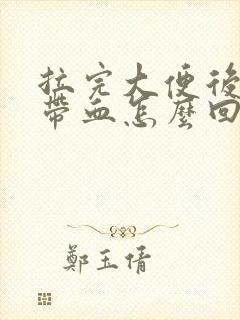 拉完大便後
帶血怎麼回
鄭玉倩